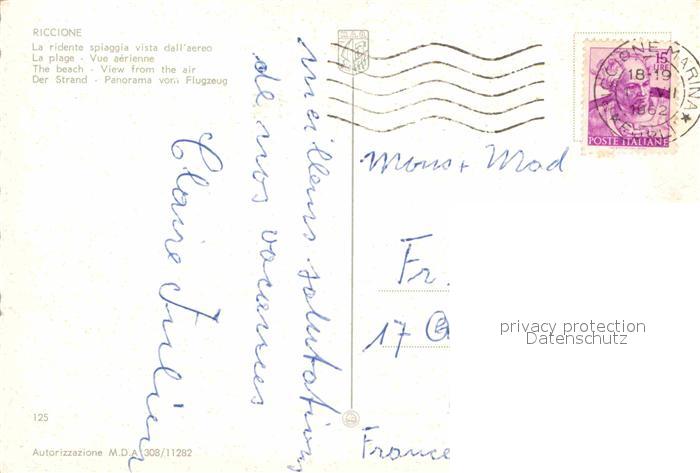 RICCIONE
La ridente spiaggia vista dall'aereo
La plage - Vue aérienne
The beach - View from the air
Der Strand - Panorama vom Flugzeug
meilleurs salutations
de nos vacances
Claire
15
LIRE
POSTE ITALIANE
RICCIONE MARINA
18-19
VI
1962
Mons + Mad
Fr.
17
France
privacy protection
Datenschutz
125
Autorizzazione M.D.A. 308/11282